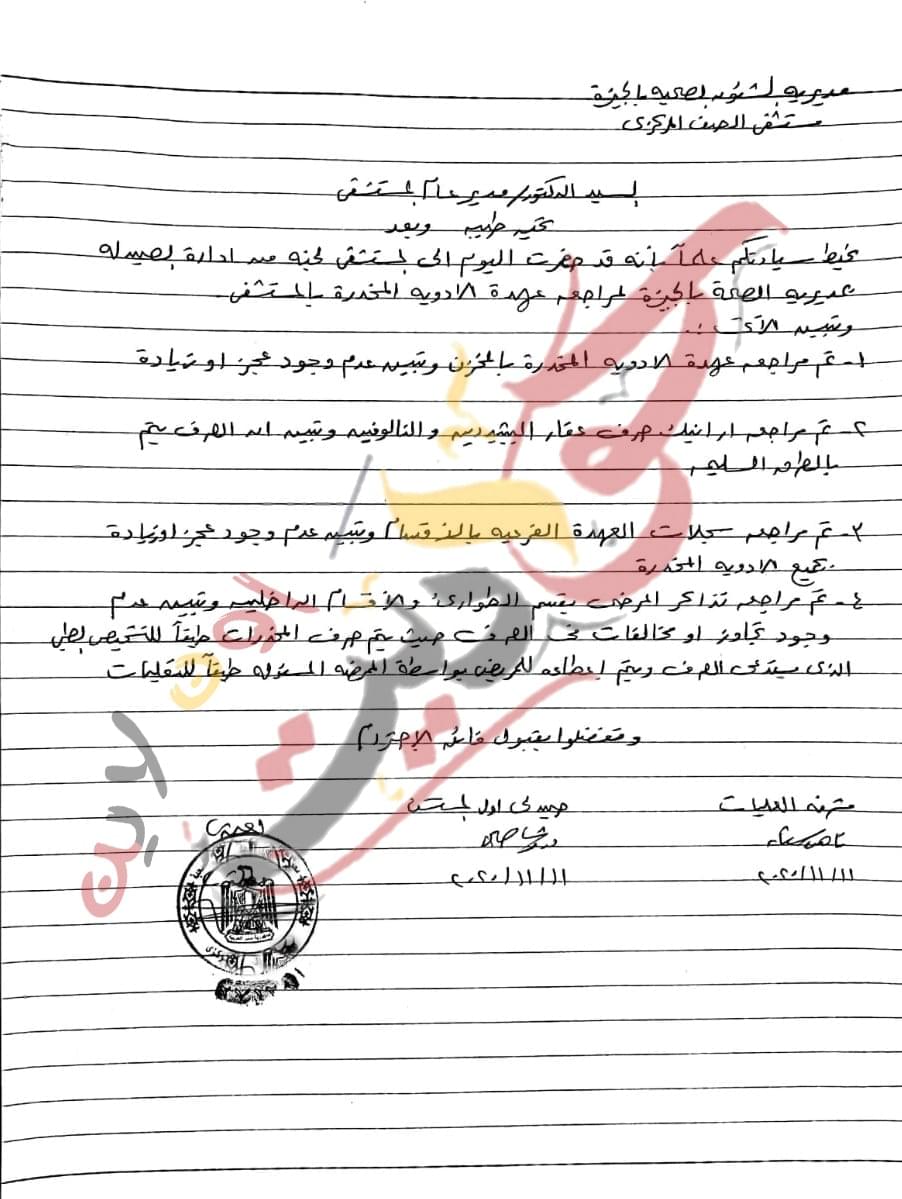 مديرية الشئون الصحية بالجيزة
مستشفى الصف المركزى
السيد الدكتور/ مدير عام المستشفى
تحية طيبه وبعد
نحيط سيادتكم علماً بأنه قد حضرت اليوم الى المستشفى لجنه من ادارة الصيدله
بمديريه الصحة بالجيزة لمراجعه عهدة الادويه المخدرة بالمستشفى.
وتبين الآتى :.
١- تم مراجعه عهدة الادويه المخدرة بالمخزن وتبين عدم وجود عجز او زيادة
٢- تم مراجعه ارانيك صرف عقار البيثيدين والنالوفين وتبين ان الصرف يتم
بالطرق السليمه
٣- تم مراجعه سجلات العهدة الفرعيه بالأقسام وتبين عدم وجود عجز او زيادة
بجميع الادويه المخدرة
٤- تم مراجعه تذاكر المرضى بقسم الطوارئ والأقسام الداخليه وتبين عدم
وجود تجاوز او مخالفات فى الصرف حيث يتم صرف المخدرات طبقاً للتشخيص الطبى
الذى يستدعى الصرف ويتم اعطاءه للمريض بواسطة الممرضه المسئوله طبقاً للتعليمات
وتفضلوا بقبول فائق الإحترام
مشرفه العمليات
صيدلى اول المستشفى
٢٠٢٠/١١/١١
٢٠٢٠/١١/١١
أون لاين